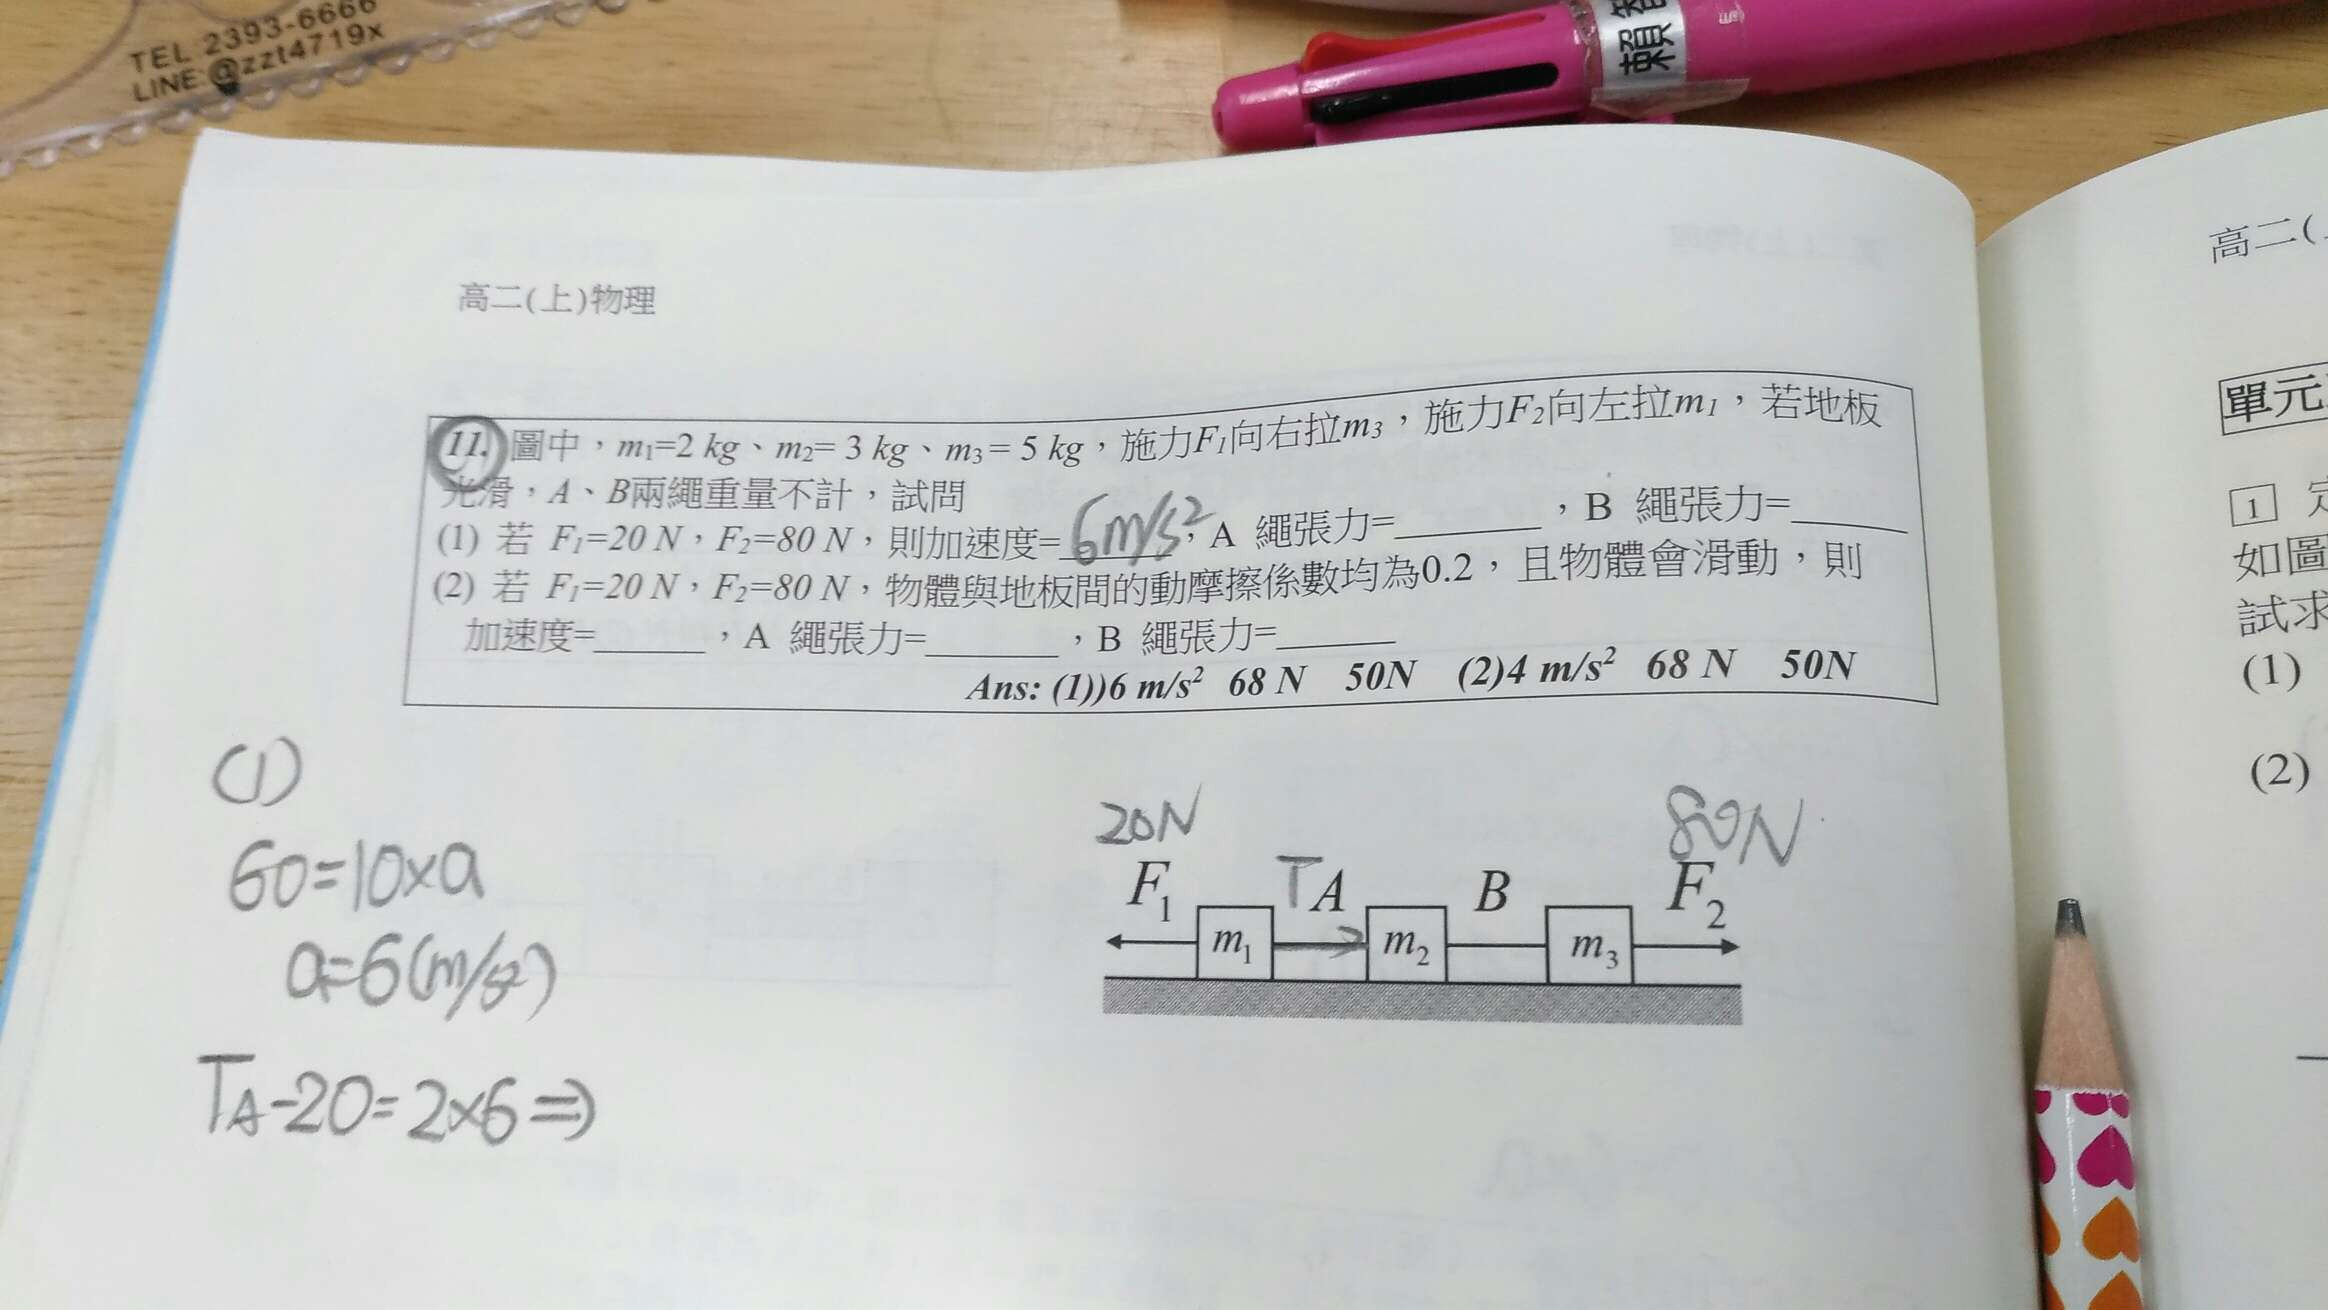 TEL:2393-6666
LINE:@zzt4719x
賴
高二(上)物理
高二(
11. 圖中，m1=2 kg、m2= 3 kg、m3= 5 kg，施力F1向右拉m3，施力F2向左拉m1，若地板
光滑，A、B兩繩重量不計，試問
(1) 若 F1=20 N，F2=80 N，則加速度=6m/s²，A 繩張力=______，B 繩張力=______
(2) 若 F1=20 N，F2=80 N，物體與地板間的動摩擦係數均為0.2，且物體會滑動，則
加速度=______，A 繩張力=______，B 繩張力=______
Ans: (1))6 m/s² 68 N 50N (2)4 m/s² 68 N 50N
(1)
60=10×a
a=6(m/s²)
TA-20=2×6⇒
20N 80N
F1 TA B F2
m1 m2 m3
單元
1
如圖
試求
(1)
(2)